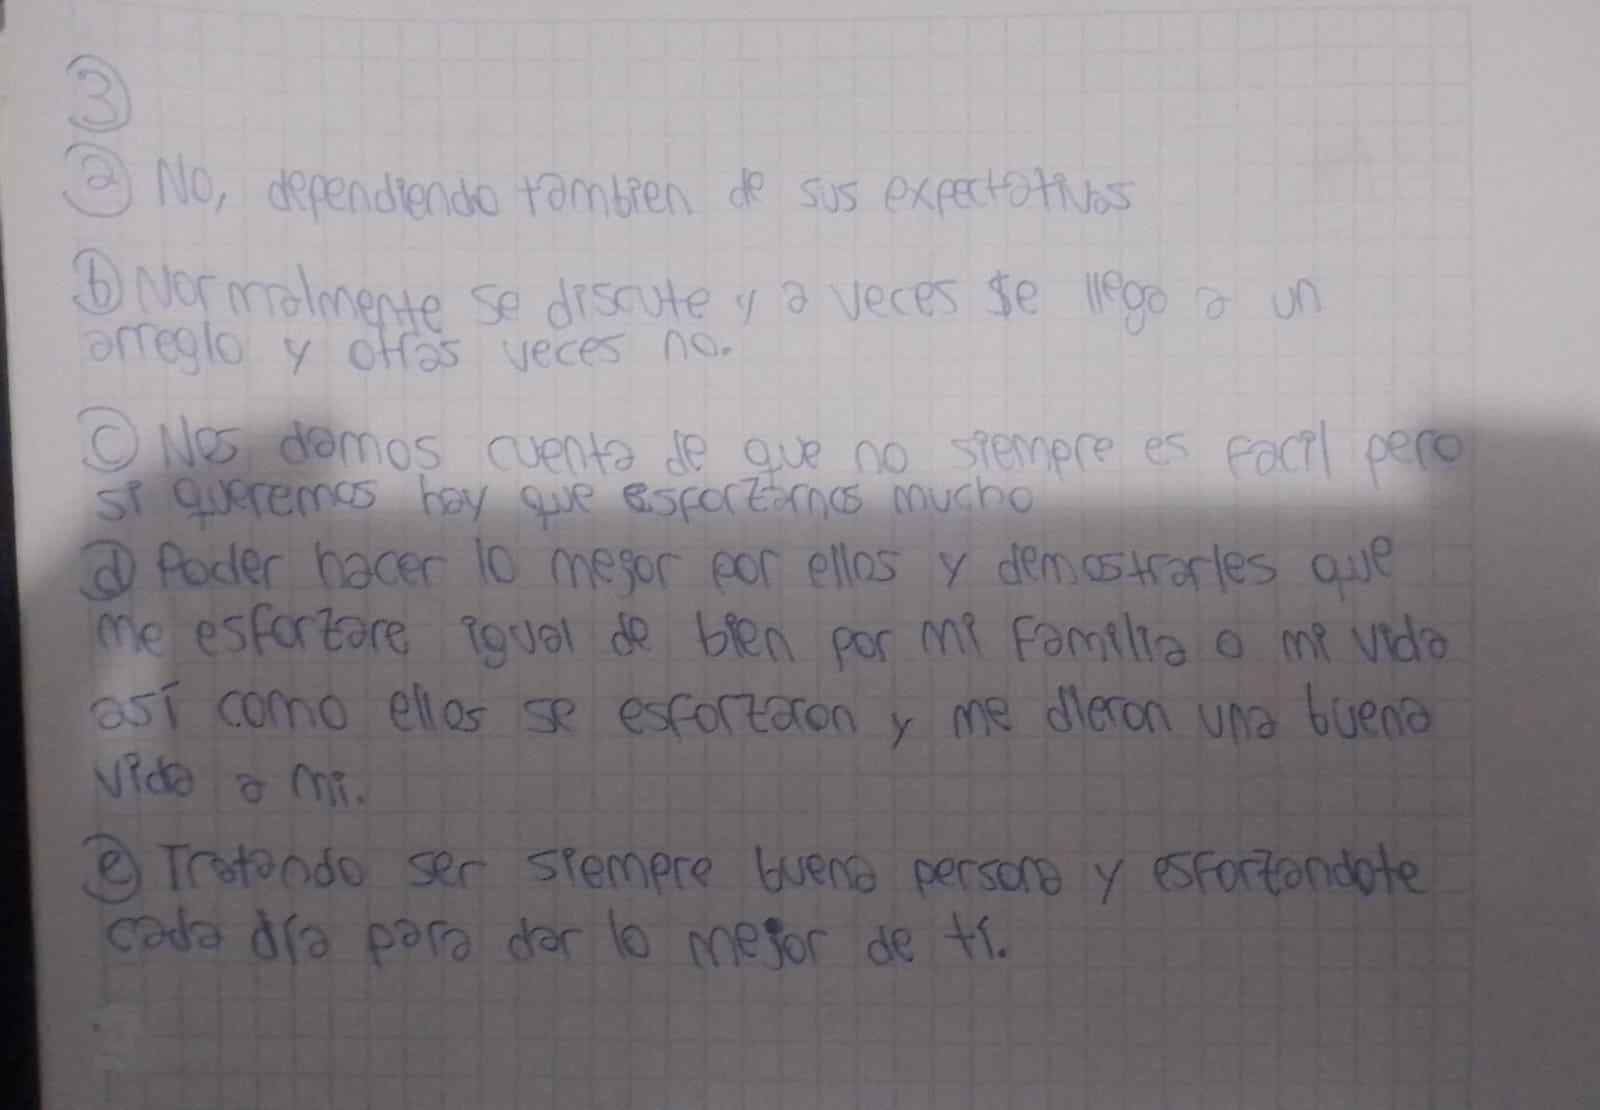 3
a No, dependiendo tambien de sus expectativas
b Normalmente se discute y a veces se llega a un
arreglo y otras veces no.
c Nos damos cuenta de que no siempre es facil pero
si queremos hay que esforzarnos mucho
d Poder hacer lo mejor por ellos y demostrarles que
me esforzare igual de bien por mi familia o mi vida
así como ellos se esforzaron y me dieron una buena
vida a mi.
e Tratando ser siempre buena persona y esforzandote
cada día para dar lo mejor de tí.